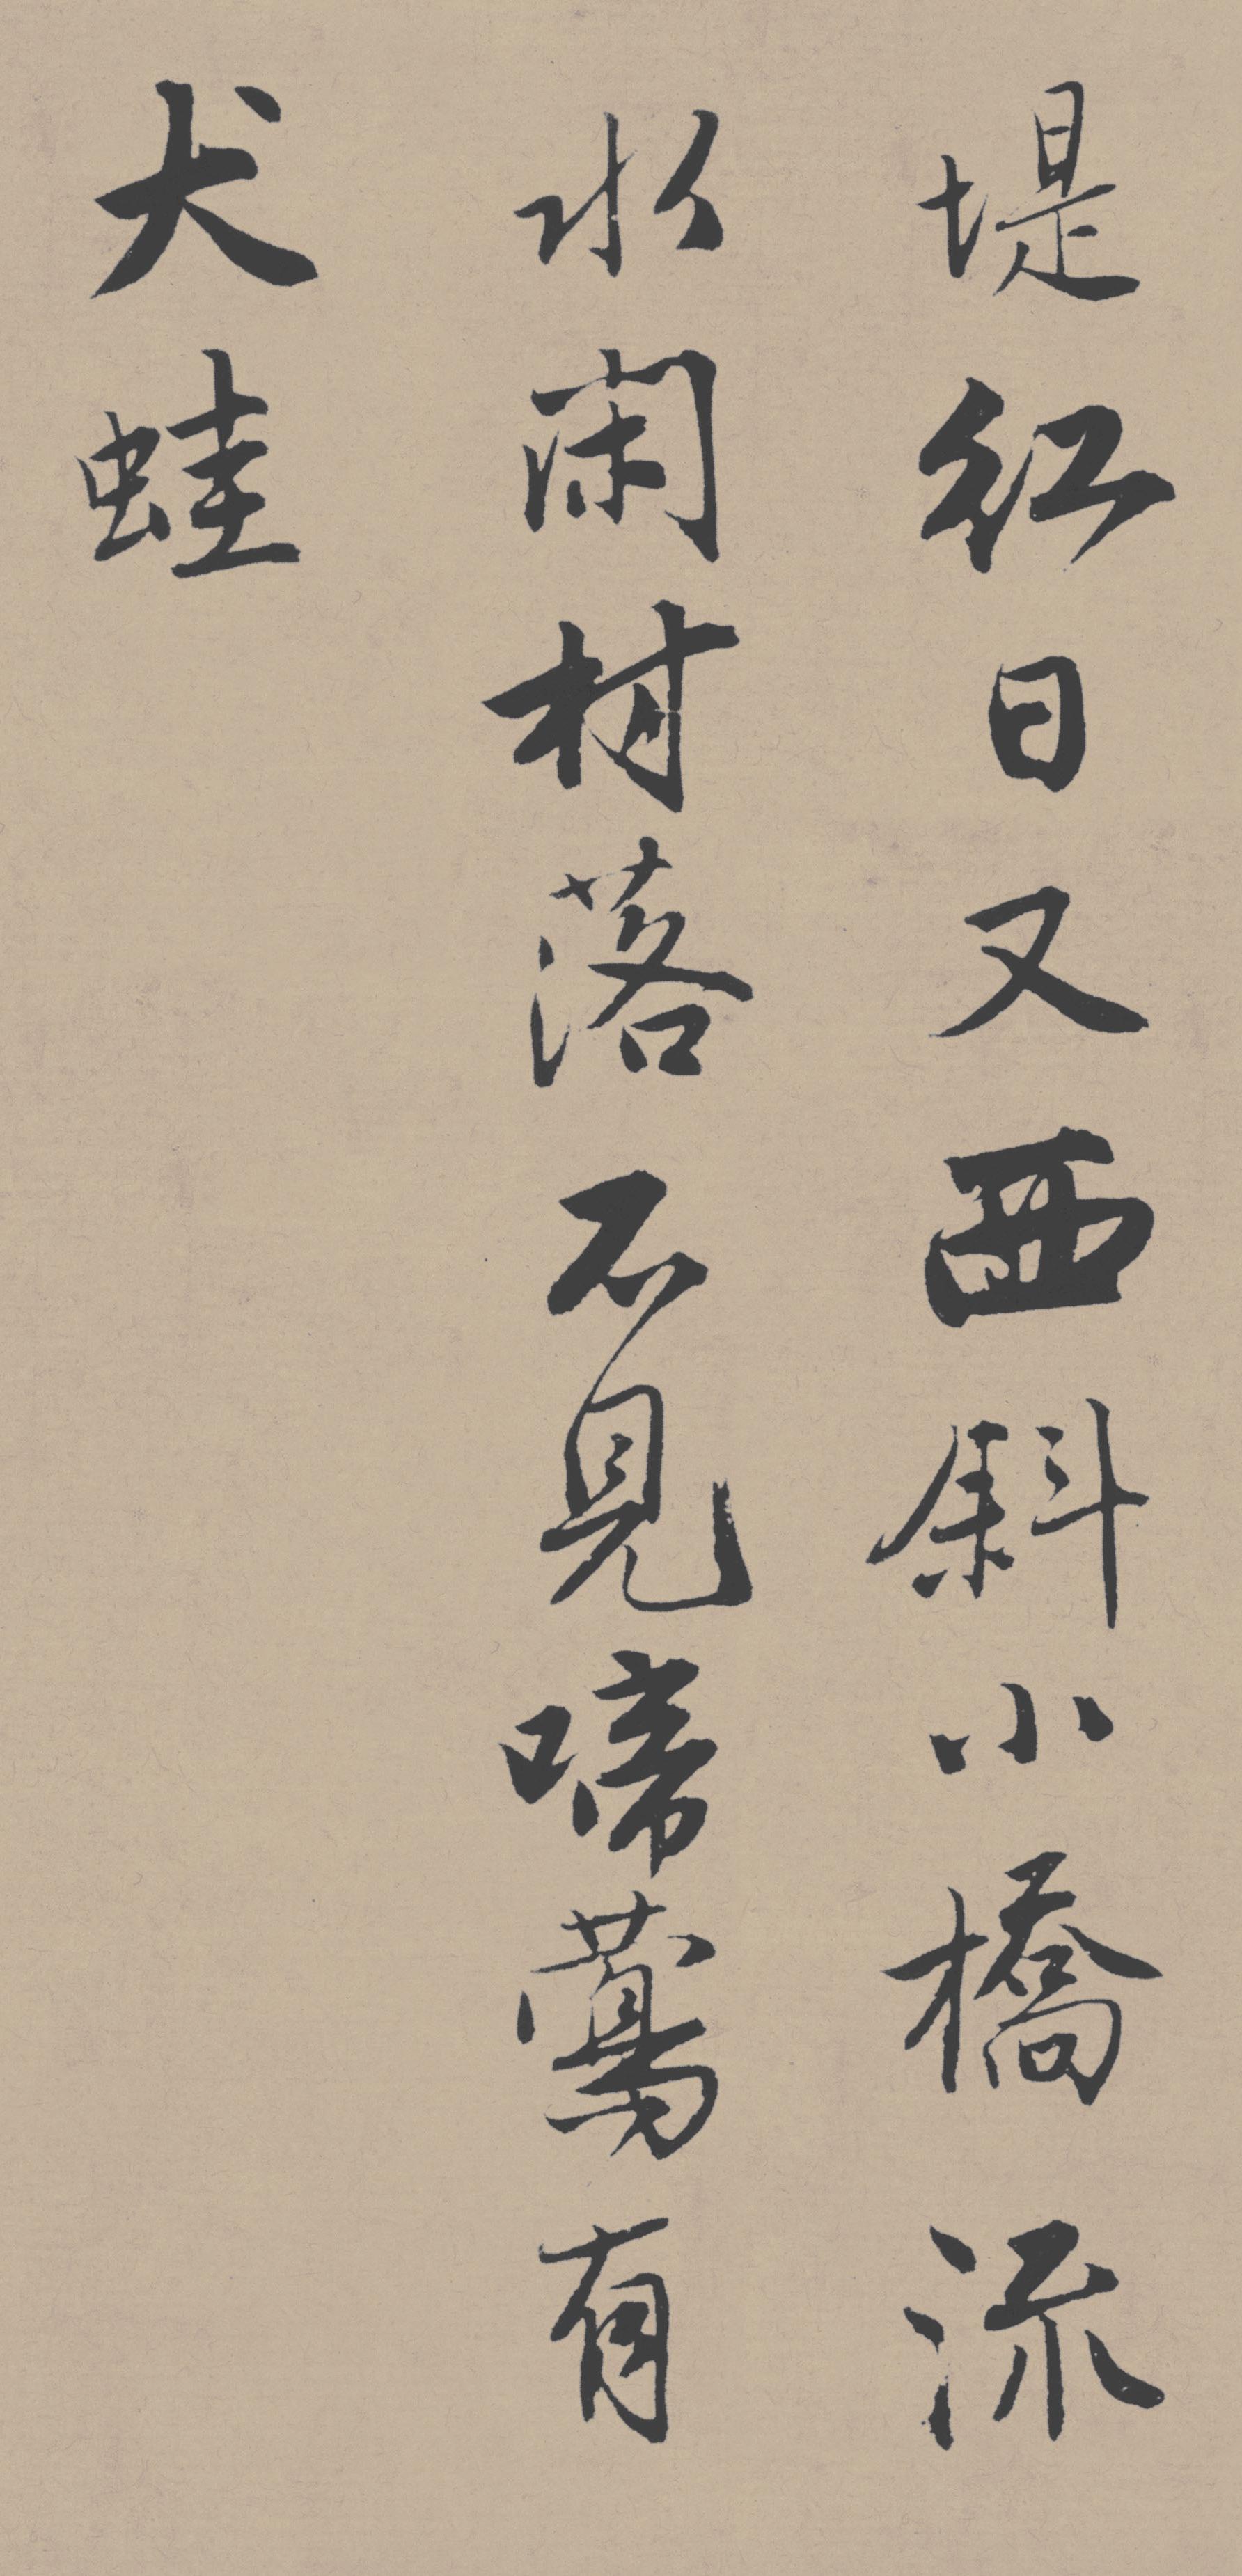 堤红日又西斜小橋流
水闲村落不見啼鶯有
犬蛙